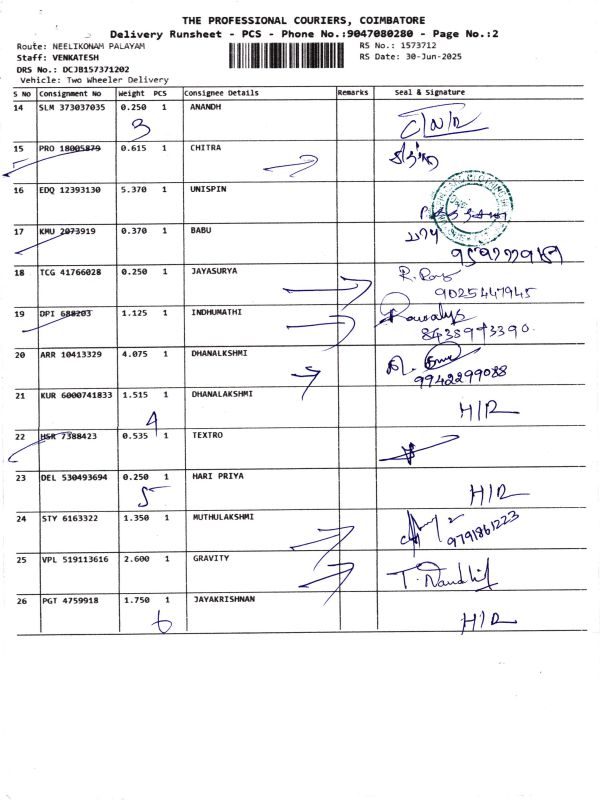 THE PROFESSIONAL COURIERS, COIMBATORE
Delivery Runsheet - PCS - Phone No.:9047080280 - Page No.:2
Route: NEELIKONAM PALAYAM RS No.: 1573712
Staff: VENKATESH RS Date: 30-Jun-2025
DRS No.: DCJB157371202
Vehicle: Two Wheeler Delivery
S No Consignment No Weight PCS Consignee Details Remarks Seal & Signature
14 SLM 373037035 0.250 1 ANANDH
3 C/N/R
15 PRO 18005879 0.615 1 CHITRA
16 EDQ 12393130 5.370 1 UNISPIN
17 KMU 2073919 0.370 1 BABU
18 TCG 41766028 0.250 1 JAYASURYA
9025447945
19 DPI 688203 1.125 1 INDHUMATHI
8438993390
20 ARR 10413329 4.075 1 DHANALKSHMI
9942299088
21 KUR 6000741833 1.515 1 DHANALAKSHMI H/R
4
22 HSR 7388423 0.535 1 TEXTRO
23 DEL 530493694 0.250 1 HARI PRIYA
5 H/R
24 STY 6163322 1.350 1 MUTHULAKSHMI
9791861223
25 VPL 519113616 2.600 1 GRAVITY
26 PGT 4759918 1.750 1 JAYAKRISHNAN
6 H/R